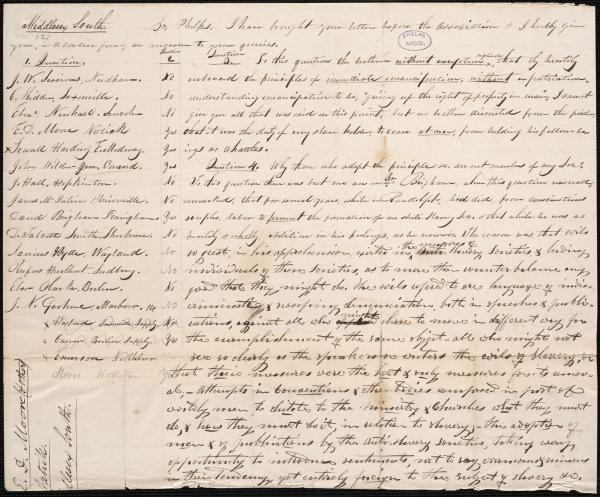 Middlesex South. Br. Phelps, I have brought your letter before the Association & I hereby give
you, in a concise form, an answer to your queries.
1. Question. 2 Question 3. To this question the brethren without exception, that they heartily
J. W. Sessions, Needham. No embraced the principles of immediate emancipation, without expatriation.
No understanding emancipation to be, "giving up the right of property in man, I cannot
Newhall, Lincoln No give you all that was said on this point, but no brother dissented from the position
E. D. Moore Natick No that it was the duty of every slave holder, to cease at once, from holding his fellow be-
x Sewall Harding E. Medway. Yes ings as chattels.
John Wilder Concord. Yes Question 4. Why those who adopt the principle are not members of any Soc.
J. Hall, Hopkinton No To this question there was but one answer. Br Brigham, when this question was read,
James McIntire No remarked, that for several years, while in Randolph, he had did, from conscientious
David Brigham Framingham Yes scruples, labor to prevent the formation of an Anti Slavery Soc, & that while he was as
D. Talcott Smith, Sherburne. No heartily & wholly abolition in his feelings, as he now is. The reason was that evils
Lavius Hyde, Wayland. No so great, in his apprehension, existed in the measures of Anti Slavery societies & leading
Rufus Hurlbut Sudbury No individuals of those societies, as to more than counterbalance any
No good that they might do. The evils referred to are language of indis-
J. N. Goodhue, Marlboro. 14 No criminate & sweeping denunciation both in speeches & public-
x Haxford Supply No ations, against all who might chose to move in different way for
x Supply Yes the accomplishment of the same object all who might not
x Emerson Yes see so clearly as the speakers or writers the evils of slavery, or
Moore Holliston that their measures were the best & only measures for its remov-
al, - attempts in conventions & other bodies composed in part of
worldly men to dictate to the ministry & Churches what they must
do, & how they must do it, in relation to slavery; - the adoption of
men & of publications by the Anti Slavery societies, taking every
opportunity to introduce sentiments, not to say erroneous & ruinous
in their tendency, yet entirely foreign to the subject of slavery &c.
PHELPS
MSS.
E. D. Moore & others
Natick
Middlesex South.